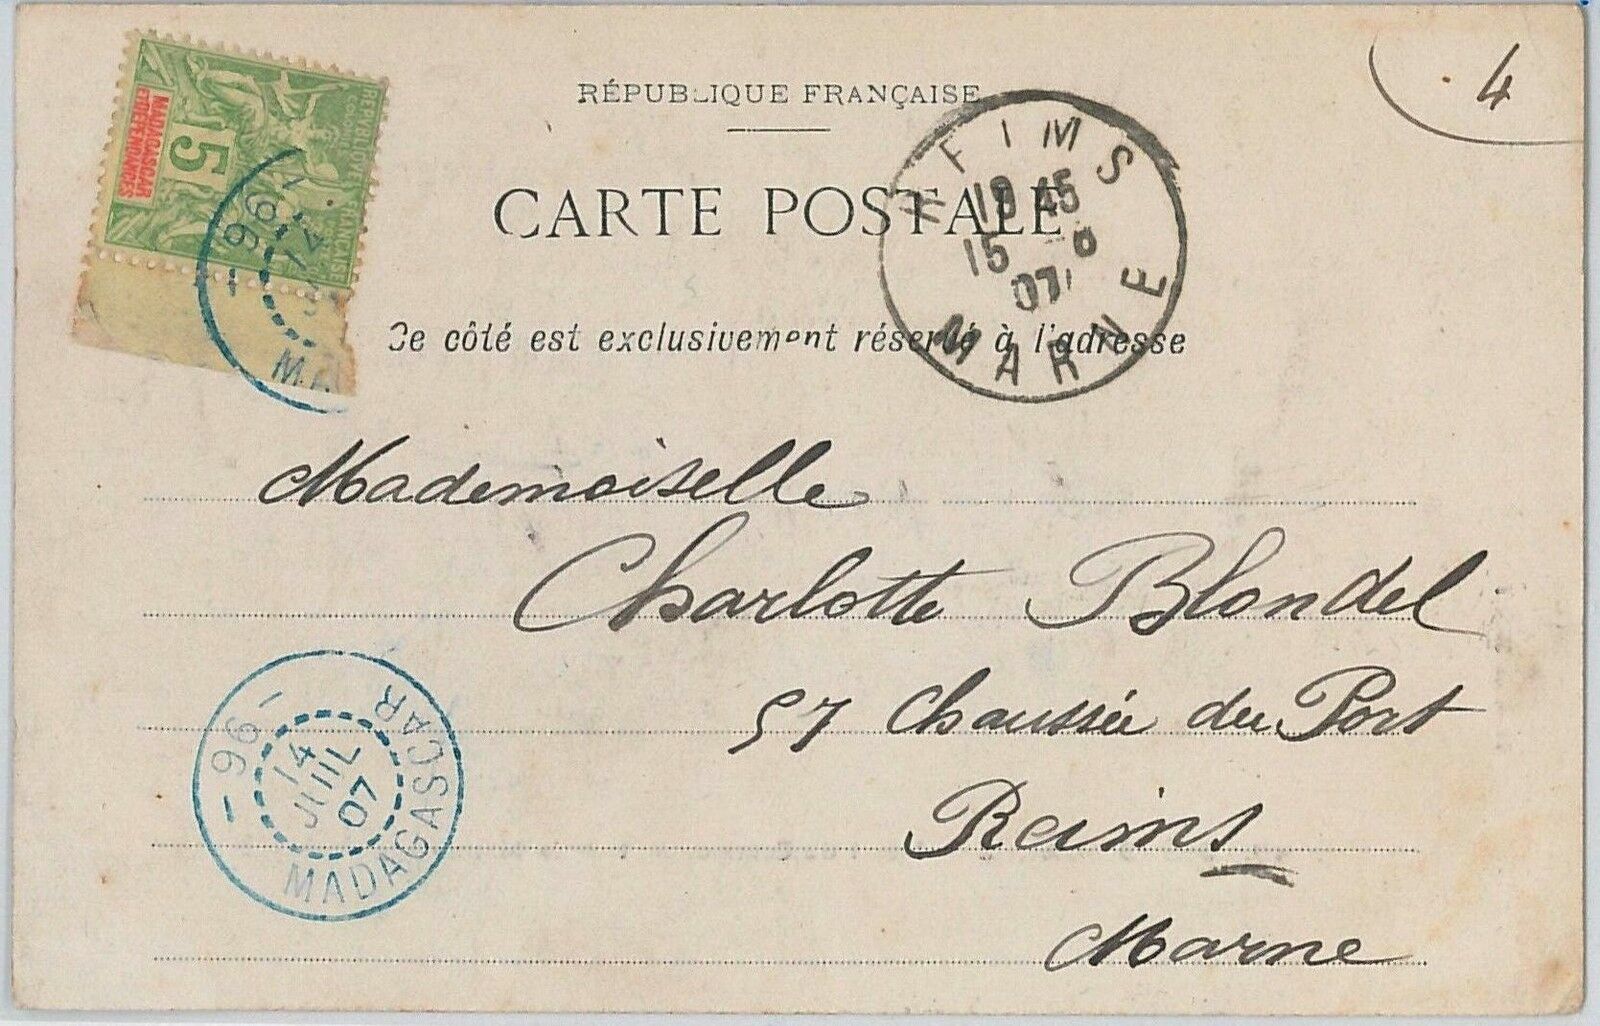 4
RÉPUBLIQUE FRANÇAISE
CARTE POSTALE
Ce côté est exclusivement réservé à l'adresse
RÉPUBLIQUE FRANÇAISE
MADAGASCAR
ET DÉPENDANCES
5
- 96 -
14
REIMS
18 45
15 - 8
07
MARNE
Mademoiselle
Charlotte Blondel
57 Chaussée du Port
Reims
Marne
- 96 -
14
JUIL
07
MADAGASCAR